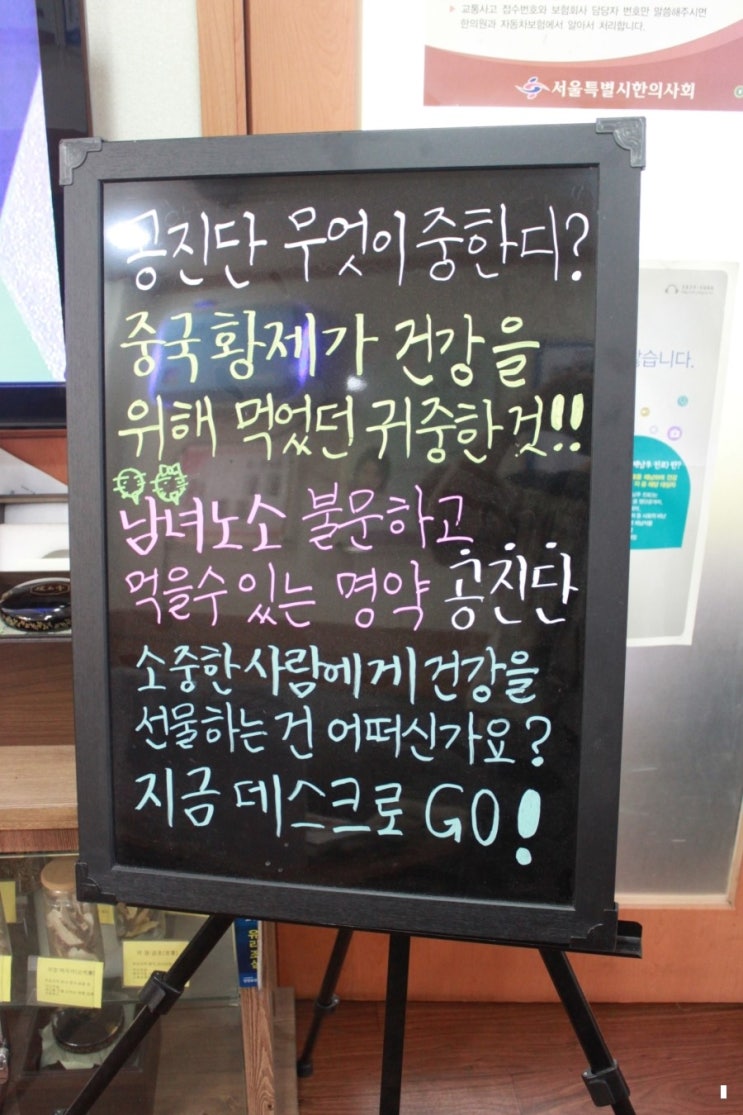 교통사고 접수번호와 보험회사 담당자 번호만 말씀해주시면
한의원과 자동차보험에서 알아서 처리합니다.
서울특별시한의사회
공진단 무엇이 중한디?
중국황제가 건강을
위해 먹었던 귀중한것!!
남녀노소 불문하고
먹을수있는 명약 공진단
소중한사람에게 건강을
선물하는건 어떠신가요?
지금 데스크로 GO!
않습니다.